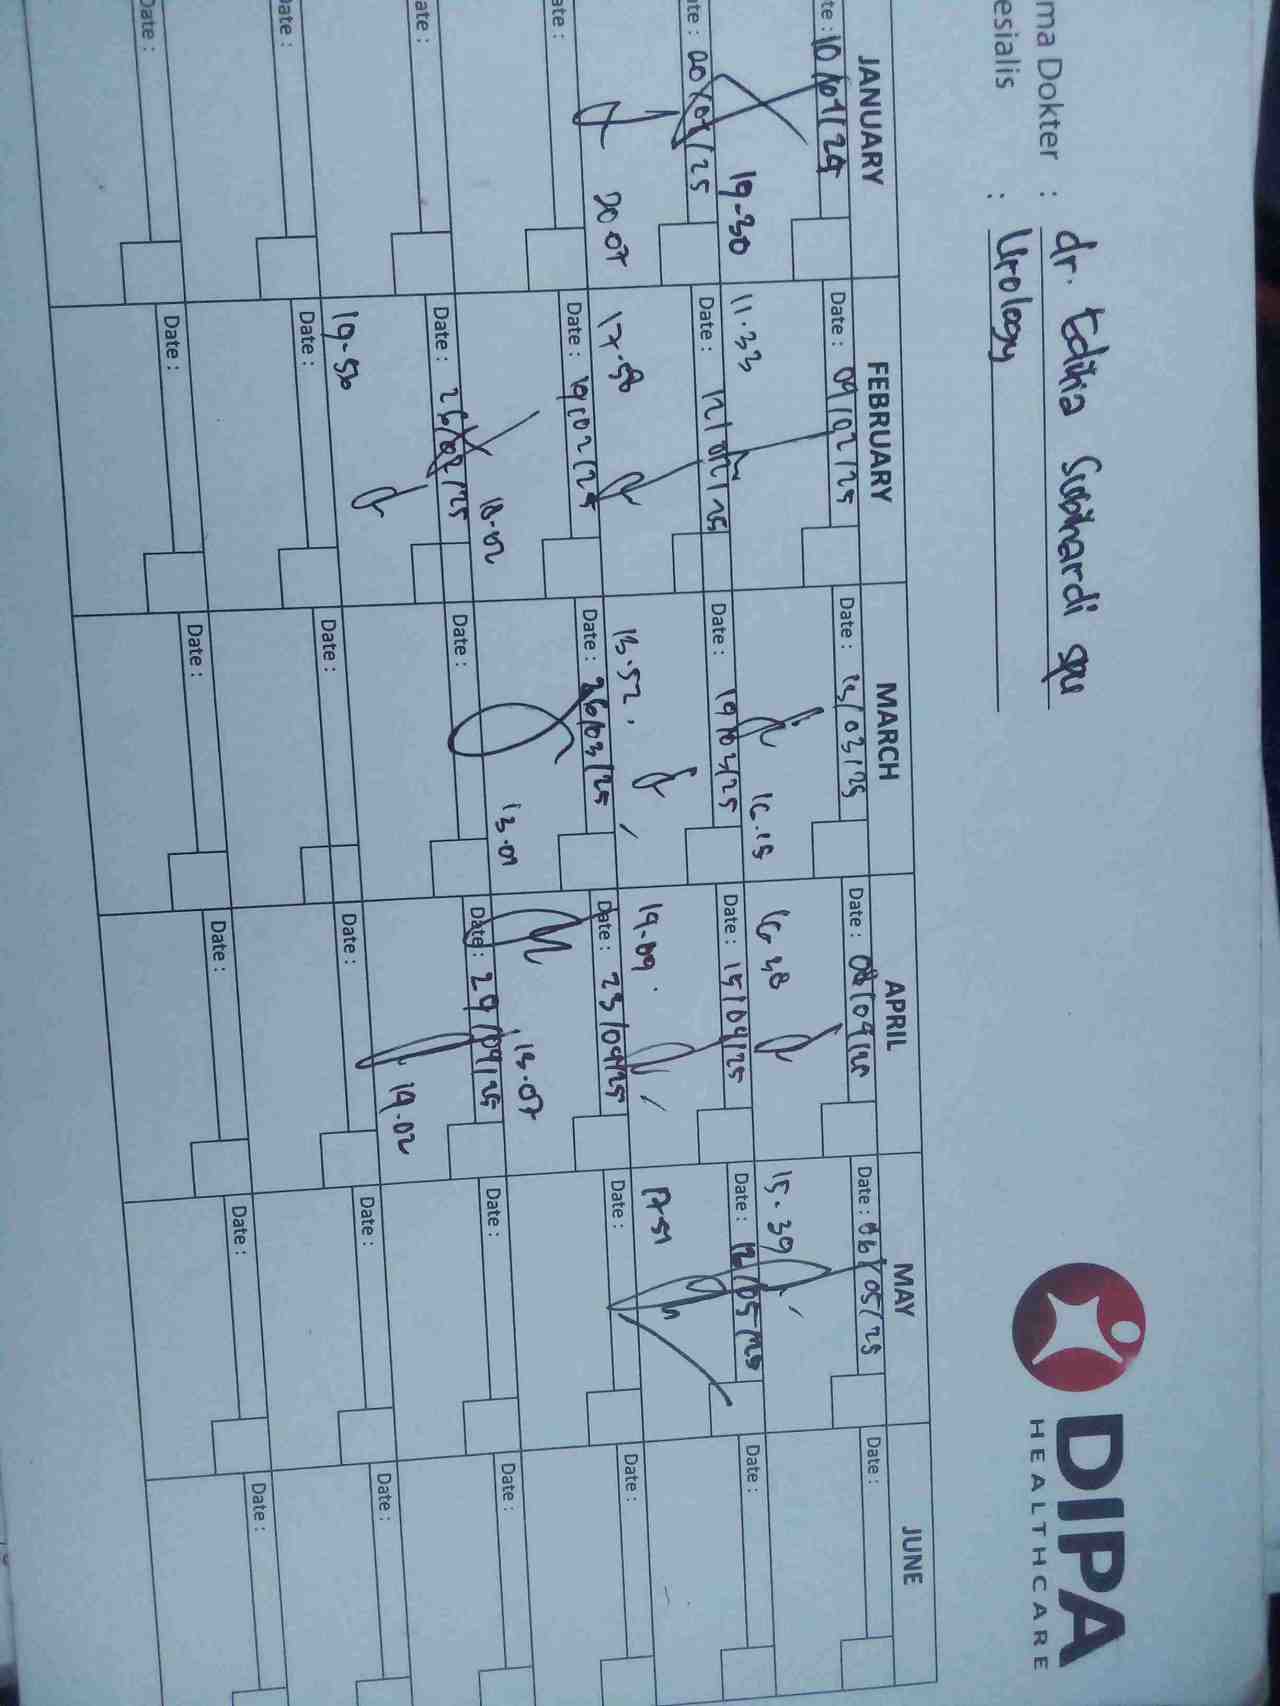 DIPA
HEALTHCARE
ma Dokter : dr. Edina Supihardi spu
esialis : Urology
JANUARY FEBRUARY MARCH APRIL MAY JUNE
te : 10/01/25 Date : 04/02/25 Date : 13/03/25 Date : 08/04/25 Date : 06/05/25 Date :
19-30 11.33 16.15 16.38 15.39
ate : 20/01/25 Date : 12/02/25 Date : 19/03/25 Date : 15/04/25 Date : 12/05/25 Date :
20.07 17.58 13.52 19.09. 17.51
ate : Date : 19/02/25 Date : 26/03/25 Date : 23/04/25 Date : Date :
18.02 13.01 13.07
ate : Date : 26/02/25 Date : Date : 29/04/25 Date : Date :
19-56 19.02
Date : Date : Date : Date : Date : Date :
Date : Date : Date : Date : Date : Date :